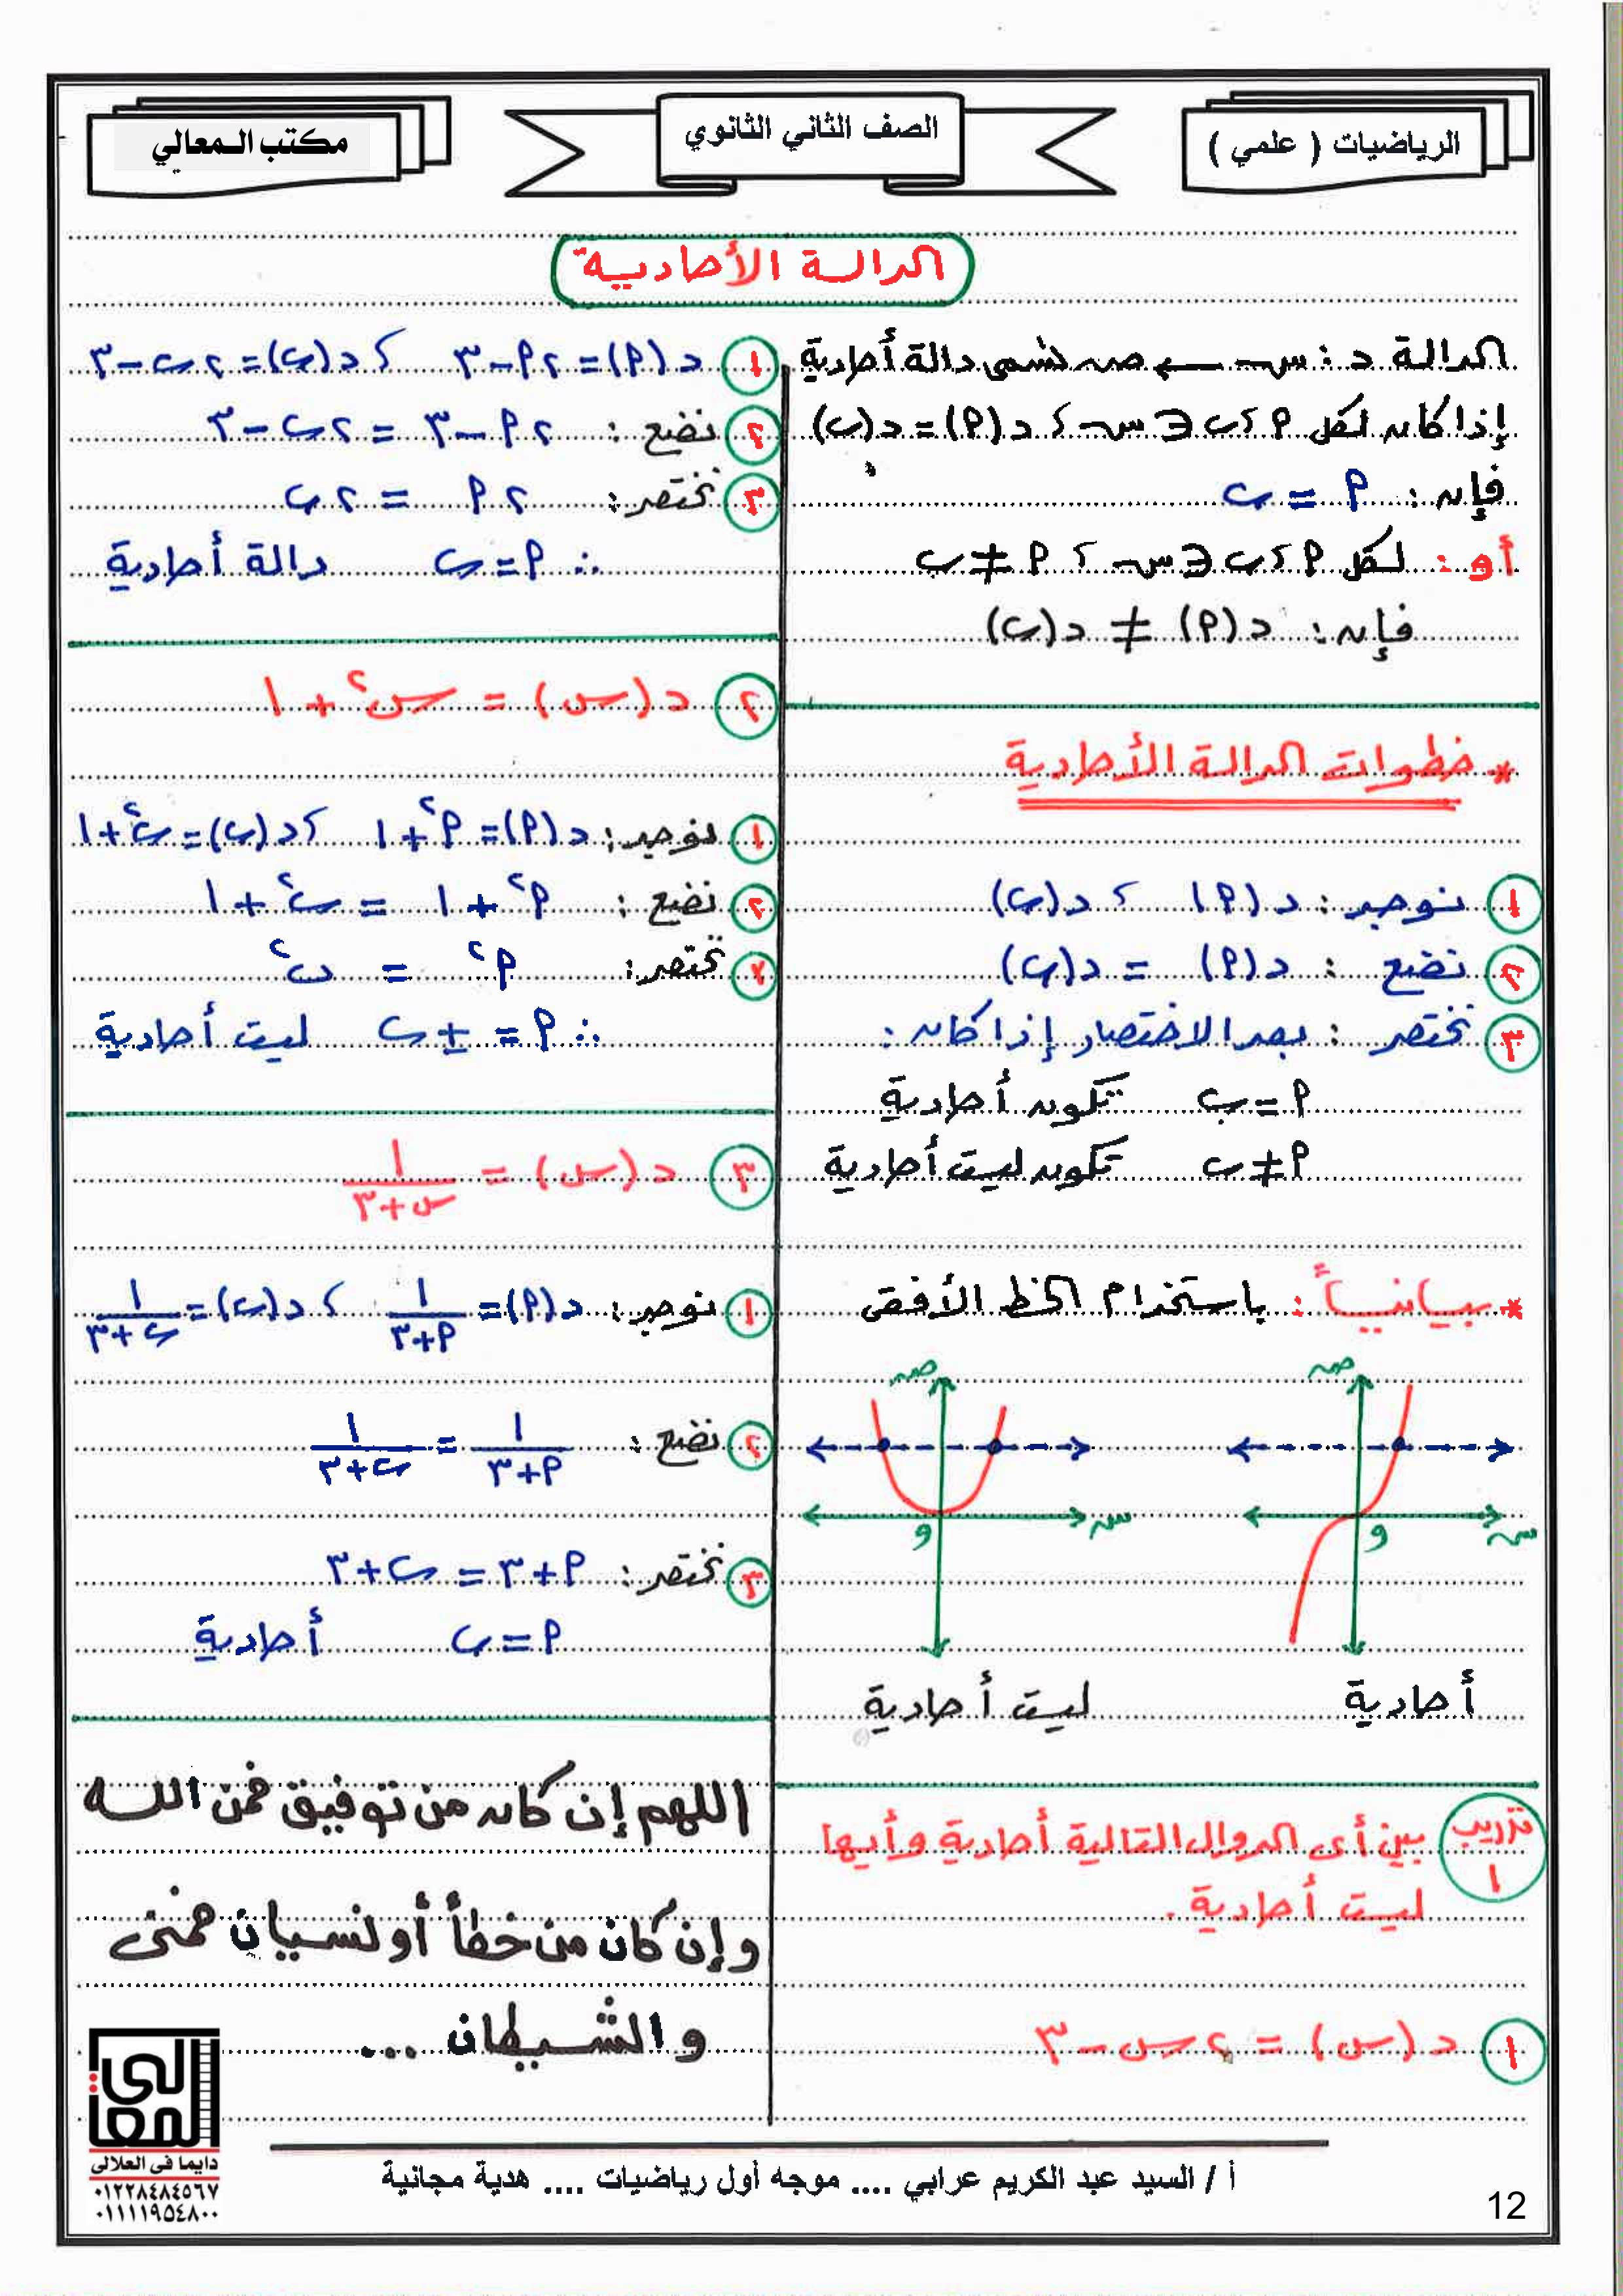 الرياضيات ( علمي )
الصف الثاني الثانوي
مكتب المعالي
الدالة الأحادية
الدالة د : س ← ص تسمى دالة أحادية
إذا كان لكل P ، ب ∈ س ، د (P) = د (ب)
فإن : P = ب
أو : لكل P ، ب ∈ س ، P ≠ ب
فإن : د (P) ≠ د (ب)
* خطوات الدالة الأحادية
١ نوجد : د (P) ، د (ب)
٢ نضع : د (P) = د (ب)
٣ نختصر : بعد الاختصار إذا كان :
P = ب تكون أحادية
P ≠ ب تكون ليست أحادية
* بيانياً : باستخدام الخط الأفقى
ص ص
س و س و
أحادية ليست أحادية
تدريب ١ بين أى الدوال التالية أحادية وأيها
ليست أحادية .
١ د (س) = ٢س - ٣
١ د (P) = ٢P - ٣ ، د (ب) = ٢ب - ٣
٢ نضع : ٢P - ٣ = ٢ب - ٣
٣ نختصر : ٢P = ٢ب
∴ P = ب دالة أحادية
٢ د (س) = س٢ + ١
١ نوجد : د (P) = P٢ + ١ ، د (ب) = ب٢ + ١
٢ نضع : P٢ + ١ = ب٢ + ١
٣ نختصر : P٢ = ب٢
∴ P = ± ب ليست أحادية
٣ د (س) = ١/(س + ٣)
١ نوجد : د (P) = ١/(P + ٣) ، د (ب) = ١/(ب + ٣)
٢ نضع : ١/(P + ٣) = ١/(ب + ٣)
٣ نختصر : P + ٣ = ب + ٣
P = ب أحادية
اللهم إن كان من توفيق فمن الله
وإن كان من خطأ أو نسيان فمنى
والشيطان ...
المعالى
دايما فى العلالى
٠١٢٢٨٤٨٤٥٦٧
٠١١١١٩٥٤٨٠٠
أ / السيد عبد الكريم عرابي .... موجه أول رياضيات .... هدية مجانية
12